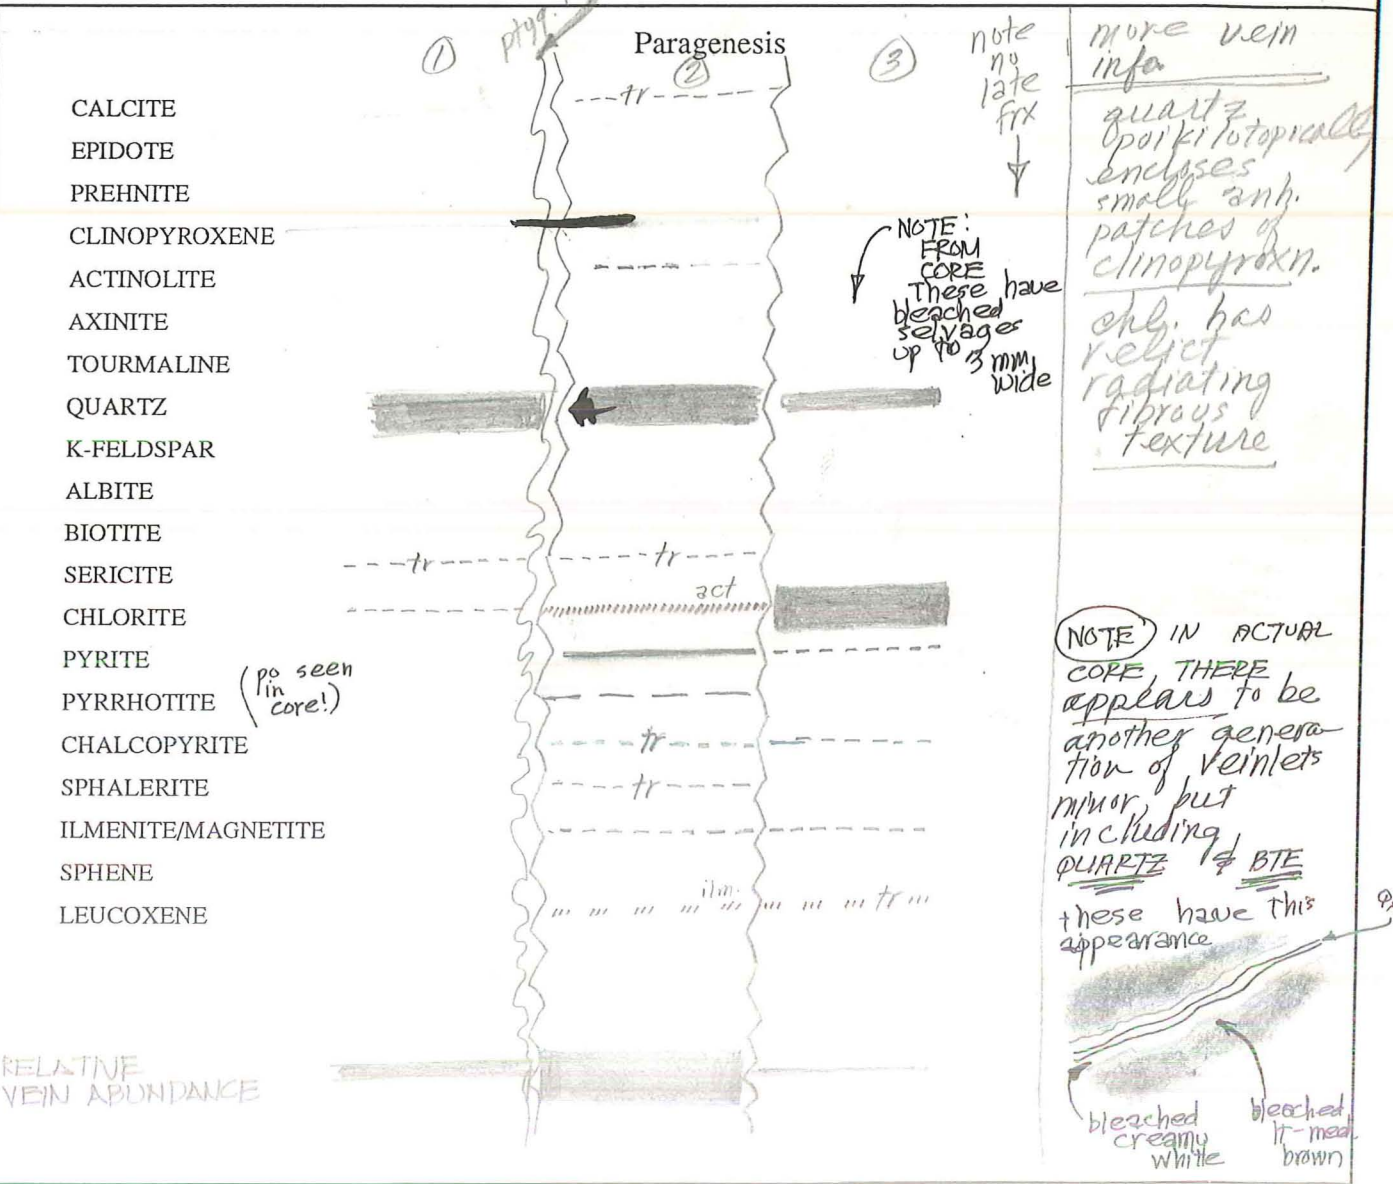 Paragenesis
ptyg.
①
②
③
CALCITE
tr
EPIDOTE
PREHNITE
CLINOPYROXENE
ACTINOLITE
AXINITE
TOURMALINE
QUARTZ
K-FELDSPAR
ALBITE
BIOTITE
SERICITE
tr
tr
CHLORITE
act
PYRITE
PYRRHOTITE
(po seen
in
core!)
CHALCOPYRITE
tr
SPHALERITE
tr
ILMENITE/MAGNETITE
SPHENE
LEUCOXENE
ilm.
tr
RELATIVE
VEIN ABUNDANCE
note
no
late
frx
NOTE:
FROM
CORE
These have
bleached
selvages
up to 3 mm
wide
more vein
info
quartz
poikilotopically
encloses
small anh.
patches of
clinopyroxn.
chl. has
relict
radiating
fibrous
texture
NOTE IN ACTUAL
CORE, THERE
appears to be
another genera-
tion of veinlets
minor, but
including
QUARTZ & BTE
these have this
appearance
bleached
creamy
white
bleached
lt-med
brown